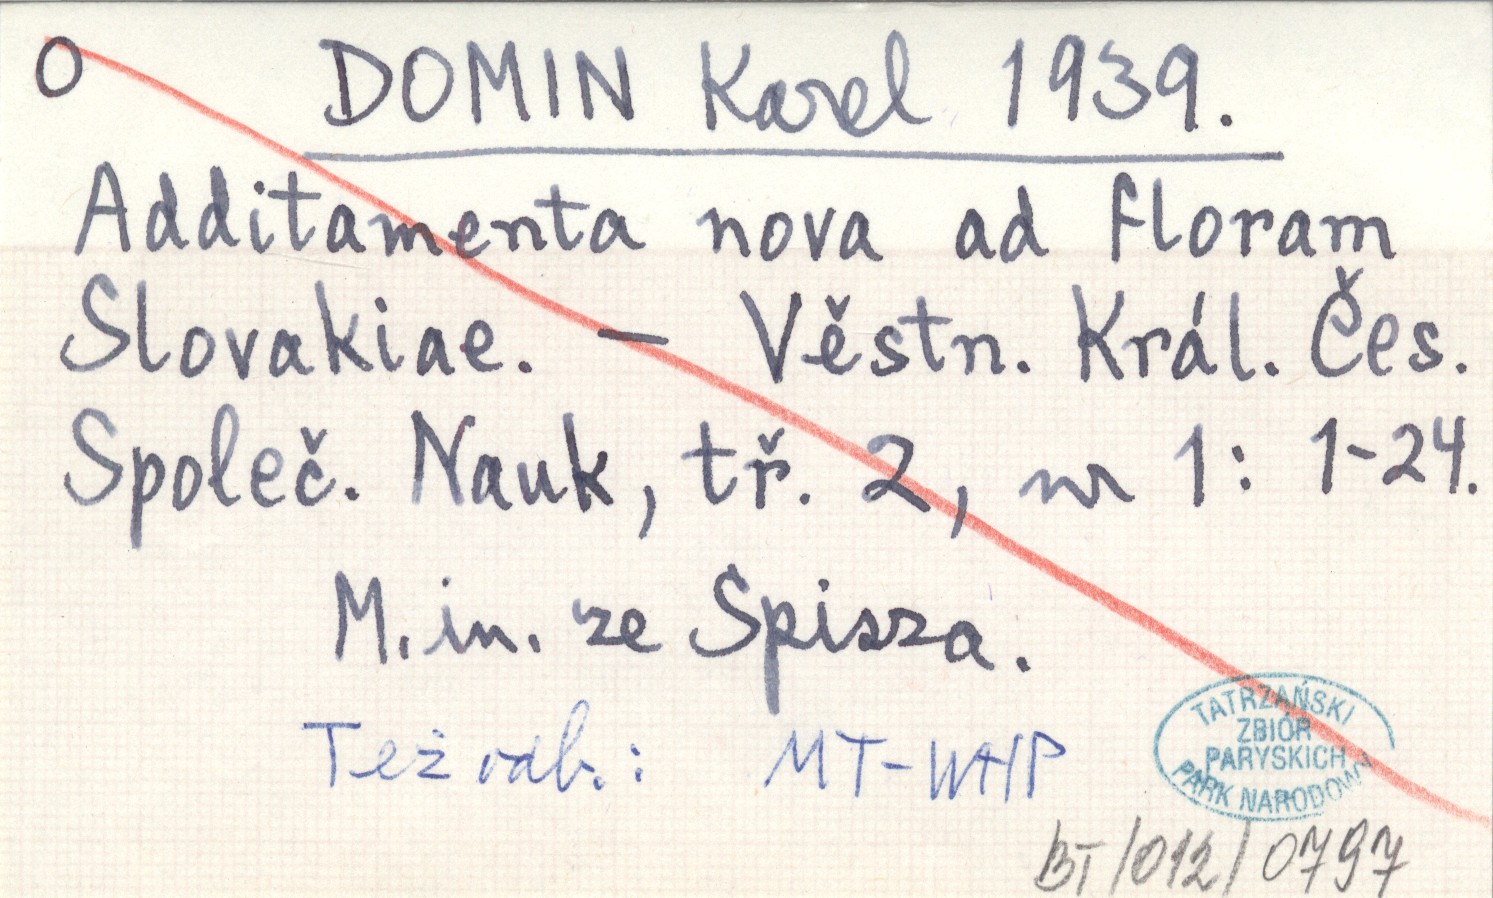 O DOMIN Karel 1939.
Additamenta nova ad floram
Slovakiae. – Věstn. Král. Čes.
Společ. Nauk, tř. 2, nr 1: 1-24.
M.in. ze Spisza.
Też odb.: MT-WHP
TATRZAŃSKI
ZBIÓR
PARYSKICH
PARK NARODOWY
BT/012/0797